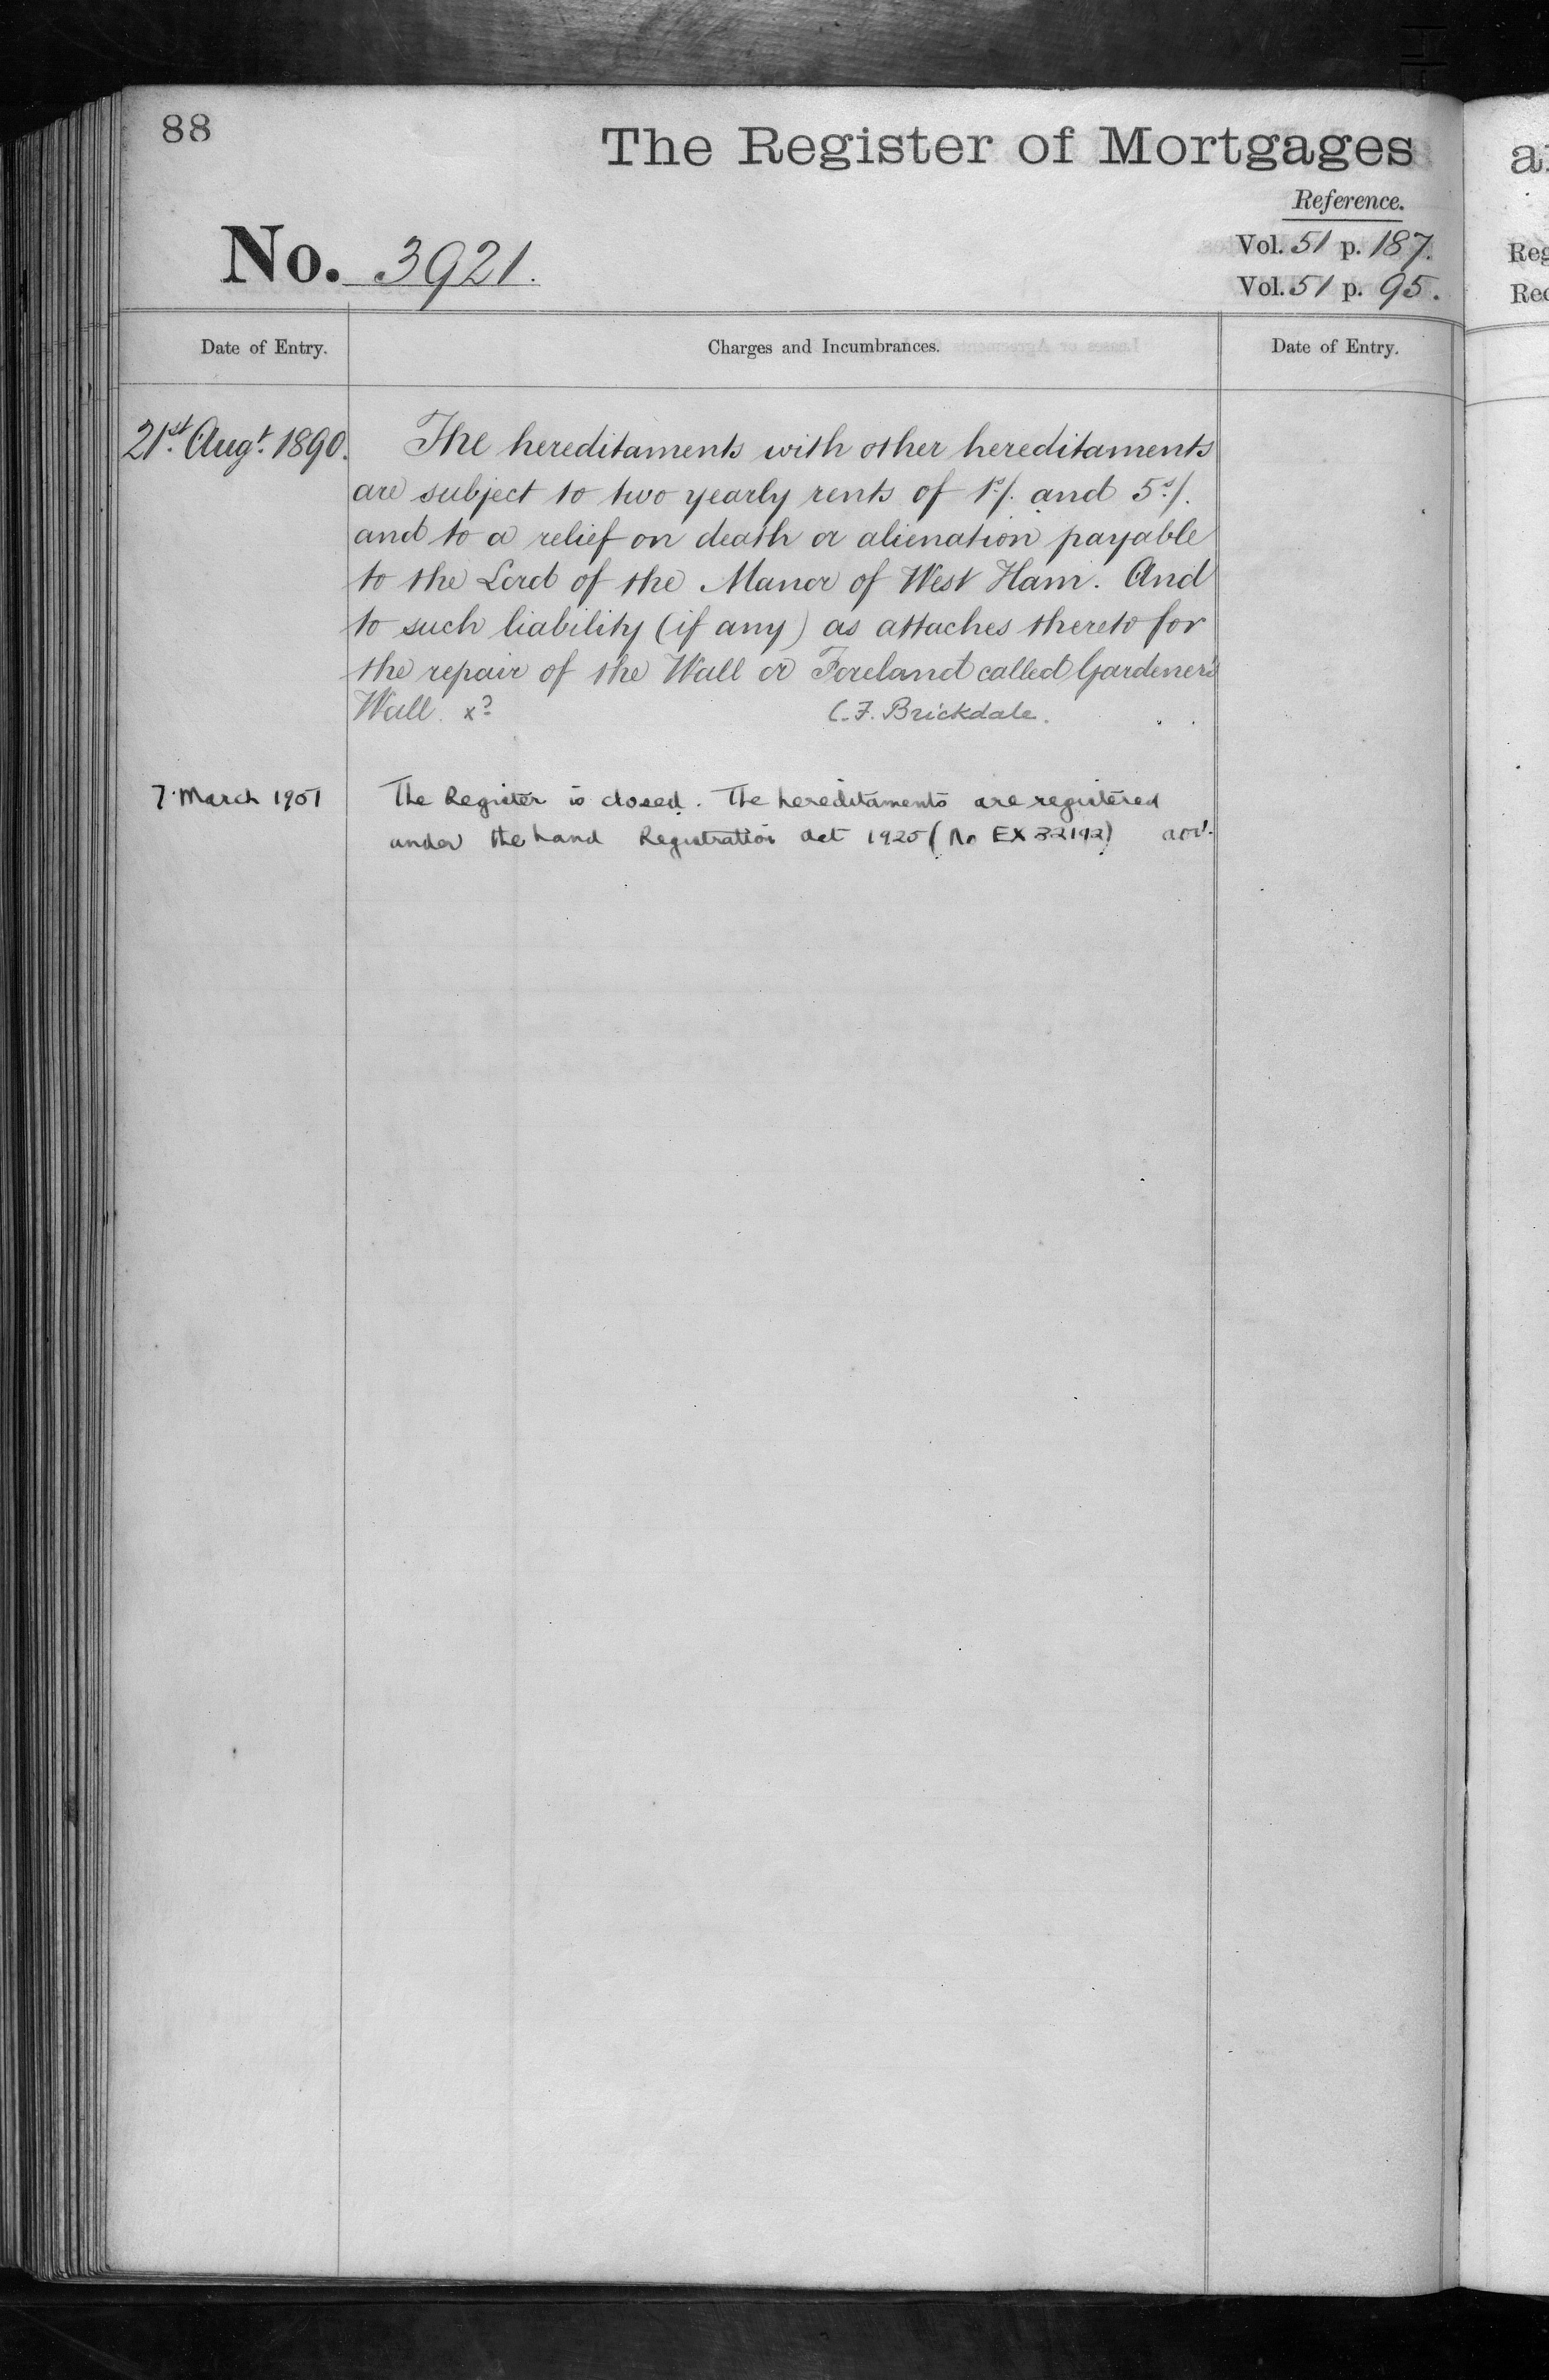 88
The Register of Mortgages
Reference.
No. 3921.
Vol. 51 p. 187.
Vol. 51 p. 95.
Date of Entry.
Charges and Incumbrances.
Date of Entry.
21st Augt. 1890.
The hereditaments with other hereditaments
are subject to two yearly rents of 1s/. and 5s/.
and to a relief on death or alienation payable
to the Lord of the Manor of West Ham. And
to such liability (if any) as attaches thereto for
the repair of the Wall or Foreland called Gardener's
Wall. x?
C. F. Brickdale.
7. March 1951
The Register is closed. The hereditaments are registered
under the Land Registration Act 1925 (No EX 32192)
a
Reg
Rec